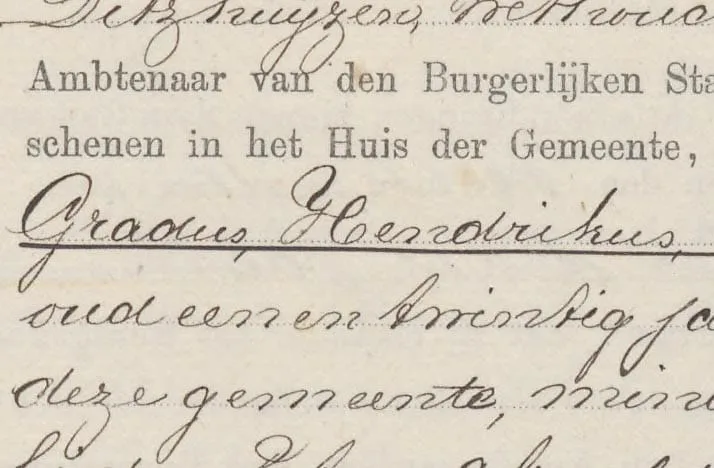 Ditzhuyzen, Wethoud
Ambtenaar van den Burgerlijken Sta
schenen in het Huis der Gemeente,
Gradus, Hendrikus,
oud een en twintig ja
deze gemeente, min